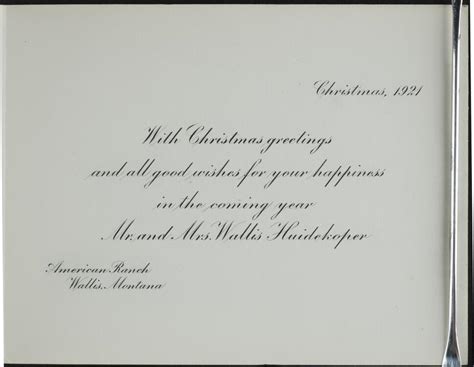 Christmas, 1921
With Christmas greetings
and all good wishes for your happiness
in the coming year
Mr. and Mrs. Wallis Huidekoper
American Ranch
Wallis, Montana